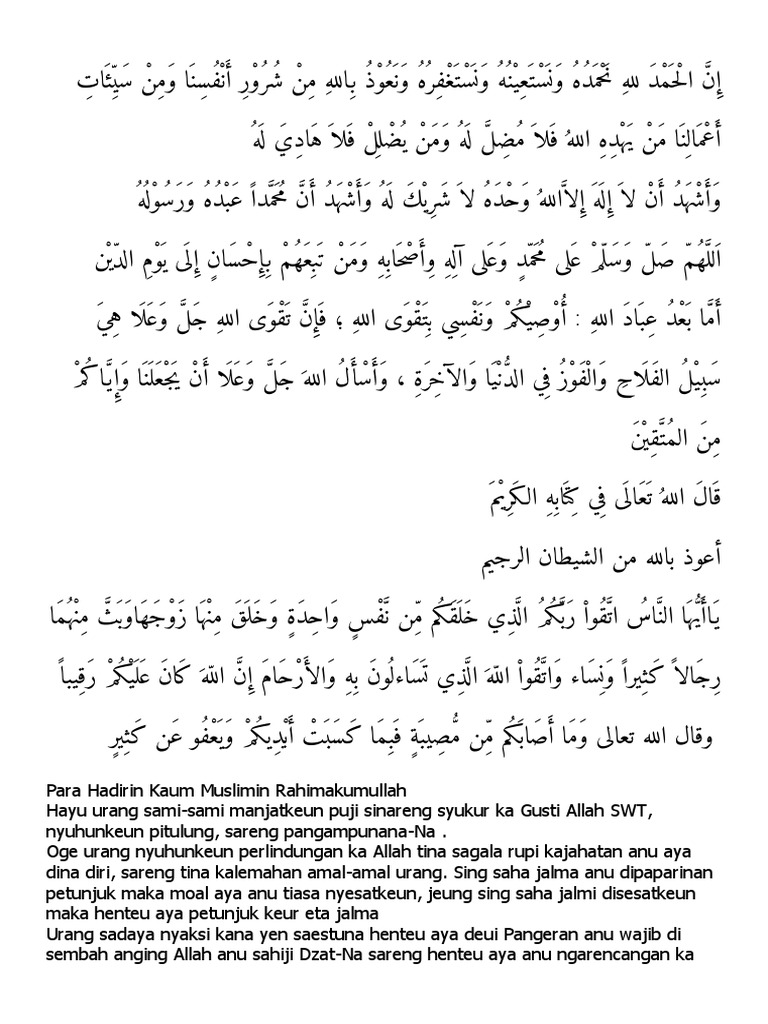 إِنَّ الْحَمْدَ للهِ نَحْمَدُهُ وَنَسْتَعِيْنُهُ وَنَسْتَغْفِرُهُ وَنَعُوْذُ بِاللهِ مِنْ شُرُوْرِ أَنْفُسِنَا وَمِنْ سَيِّئَاتِ
أَعْمَالِنَا مَنْ يَهْدِهِ اللهُ فَلاَ مُضِلَّ لَهُ وَمَنْ يُضْلِلْ فَلاَ هَادِيَ لَهُ
وَأَشْهَدُ أَنْ لاَ إِلَهَ إِلاَّاللهُ وَحْدَهُ لاَ شَرِيْكَ لَهُ وَأَشْهَدُ أَنَّ مُحَمَّداً عَبْدُهُ وَرَسُوْلُهُ
اَللَّهُمّ صَلّ وَسَلّمْ عَلى مُحَمّدٍ وَعَلى آلِهِ وِأَصْحَابِهِ وَمَنْ تَبِعَهُمْ بِإِحْسَانٍ إِلَى يَوْمِ الدّيْن
أَمَّا بَعْدُ عِبَادَ اللهِ : أُوْصِيْكُمْ وَنَفْسِي بِتَقْوَى اللهِ ؛ فَإِنَّ تَقْوَى اللهِ جَلَّ وَعَلَا هِيَ
سَبِيْلُ الفَلَاحِ وَالْفَوْزُ فِي الدُّنْيَا وَالآخِرَةِ ، وَأَسْأَلُ اللهَ جَلَّ وَعَلَا أَنْ يَجْعَلَنَا وَإِيَّاكُمْ
مِنَ المُتَّقِيْنَ
قَالَ اللهُ تَعَالَى فِي كِتَابِهِ الكَرِيْمَ
أعوذ بالله من الشيطان الرجيم
يَاأَيُّهَا النَّاسُ اتَّقُواْ رَبَّكُمُ الَّذِي خَلَقَكُم مِّن نَّفْسٍ وَاحِدَةٍ وَخَلَقَ مِنْهَا زَوْجَهَاوَبَثَّ مِنْهُمَا
رِجَالاً كَثِيراً وَنِسَاء وَاتَّقُواْ اللّهَ الَّذِي تَسَاءلُونَ بِهِ وَالأَرْحَامَ إِنَّ اللّهَ كَانَ عَلَيْكُمْ رَقِيباً
وقال الله تعالى وَمَا أَصَابَكُم مِّن مُّصِيبَةٍ فَبِمَا كَسَبَتْ أَيْدِيكُمْ وَيَعْفُو عَن كَثِيرٍ
Para Hadirin Kaum Muslimin Rahimakumullah
Hayu urang sami-sami manjatkeun puji sinareng syukur ka Gusti Allah SWT,
nyuhunkeun pitulung, sareng pangampunana-Na .
Oge urang nyuhunkeun perlindungan ka Allah tina sagala rupi kajahatan anu aya
dina diri, sareng tina kalemahan amal-amal urang. Sing saha jalma anu dipaparinan
petunjuk maka moal aya anu tiasa nyesatkeun, jeung sing saha jalmi disesatkeun
maka henteu aya petunjuk keur eta jalma
Urang sadaya nyaksi kana yen saestuna henteu aya deui Pangeran anu wajib di
sembah anging Allah anu sahiji Dzat-Na sareng henteu aya anu ngarencangan ka